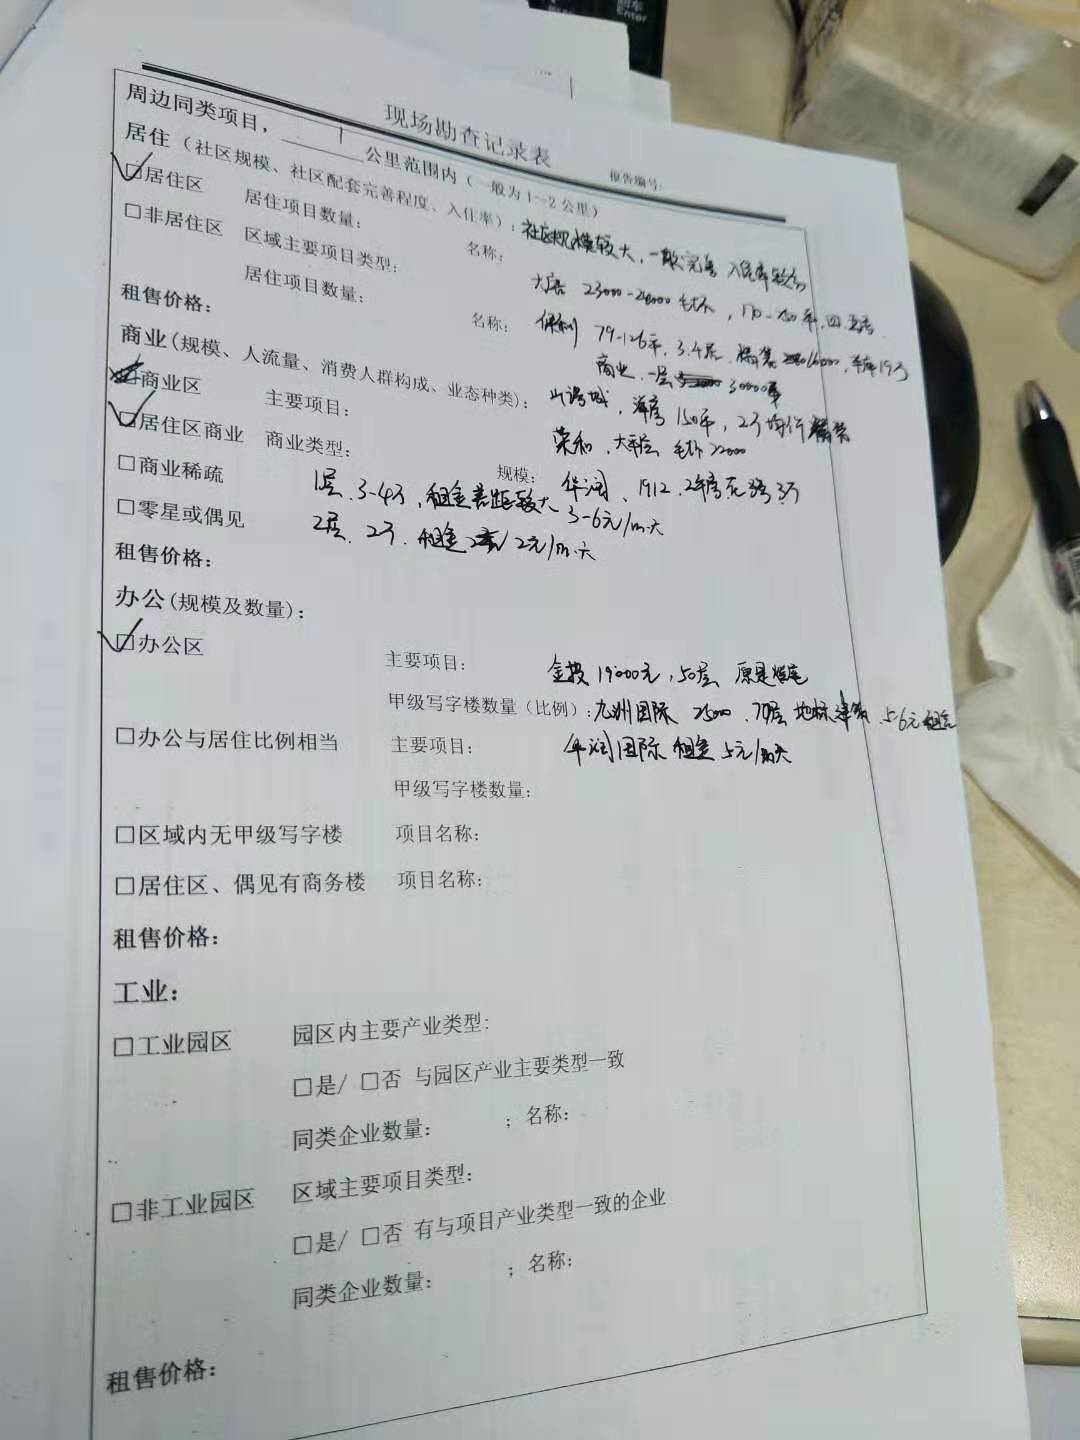 现场勘查记录表
报告编号:
周边同类项目，1公里范围内（一般为1～2公里）
居住（社区规模、社区配套完善程度、入住率）：社区规模较大，一般完善 入住率较高
☑居住区 居住项目数量： 名称：
大居 23000-24000 毛坯，
□非居住区 区域主要项目类型：
居住项目数量： 名称： 保利 79-126平，3.4层，精装 16000，车库19万
租售价格：
商业，一层 30000
商业(规模、人流量、消费人群构成、业态种类)： 150平，2万均价 精装
□商业区 主要项目： 荣和，大平层 毛坯 22000
☑居住区商业 商业类型： 规模： 华润、1912、
□商业稀疏 1层、3-4万，租金差距较大 3-6元/㎡·天
□零星或偶见 2层、2万、租金 2元/㎡·天
租售价格：
办公(规模及数量)：
☑办公区 主要项目： 金投 19000元，50层 原是
甲级写字楼数量（比例）：九洲国际 地标 5-6元租金
□办公与居住比例相当 主要项目： 华润国际 租金 5元/㎡天
甲级写字楼数量：
□区域内无甲级写字楼 项目名称：
□居住区、偶见有商务楼 项目名称：
租售价格：
工业：
□工业园区 园区内主要产业类型：
□是/ □否 与园区产业主要类型一致
同类企业数量： ；名称：
□非工业园区 区域主要项目类型：
□是/ □否 有与项目产业类型一致的企业
同类企业数量： ；名称：
租售价格：